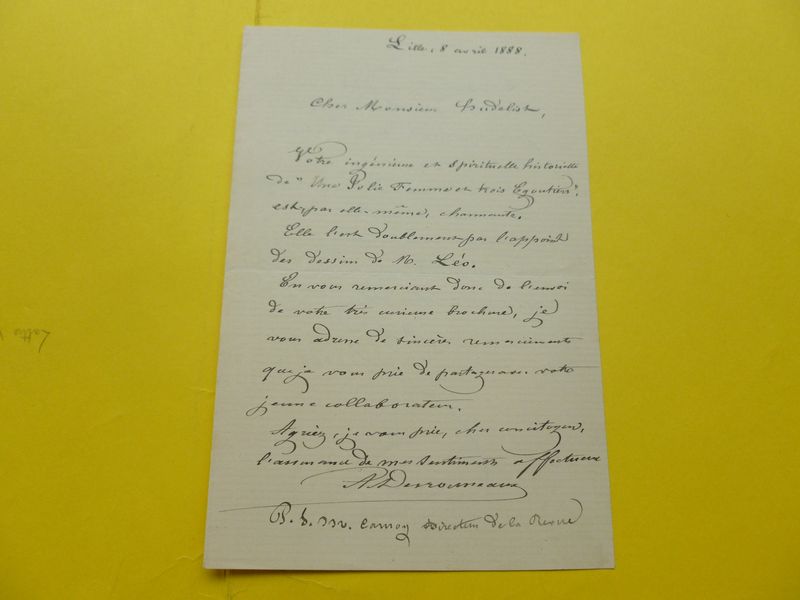 Lille, 8 avril 1888.
Cher Monsieur
Votre ingénieuse et spirituelle historiette
de "Une Jolie Femme et trois Egoutiers",
est, par elle-même, charmante.
Elle l'est doublement par l'appoint
des dessins de M. Léo.
En vous remerciant donc de l'envoi
de votre très curieuse brochure, je
vous adresse de sincères remerciements
que je vous prie de partager avec votre
jeune collaborateur.
Agréez, je vous prie, cher concitoyen,
l'assurance de mes sentiments affectueux
A Desrousseaux
Carnoy Directeur de la Revue